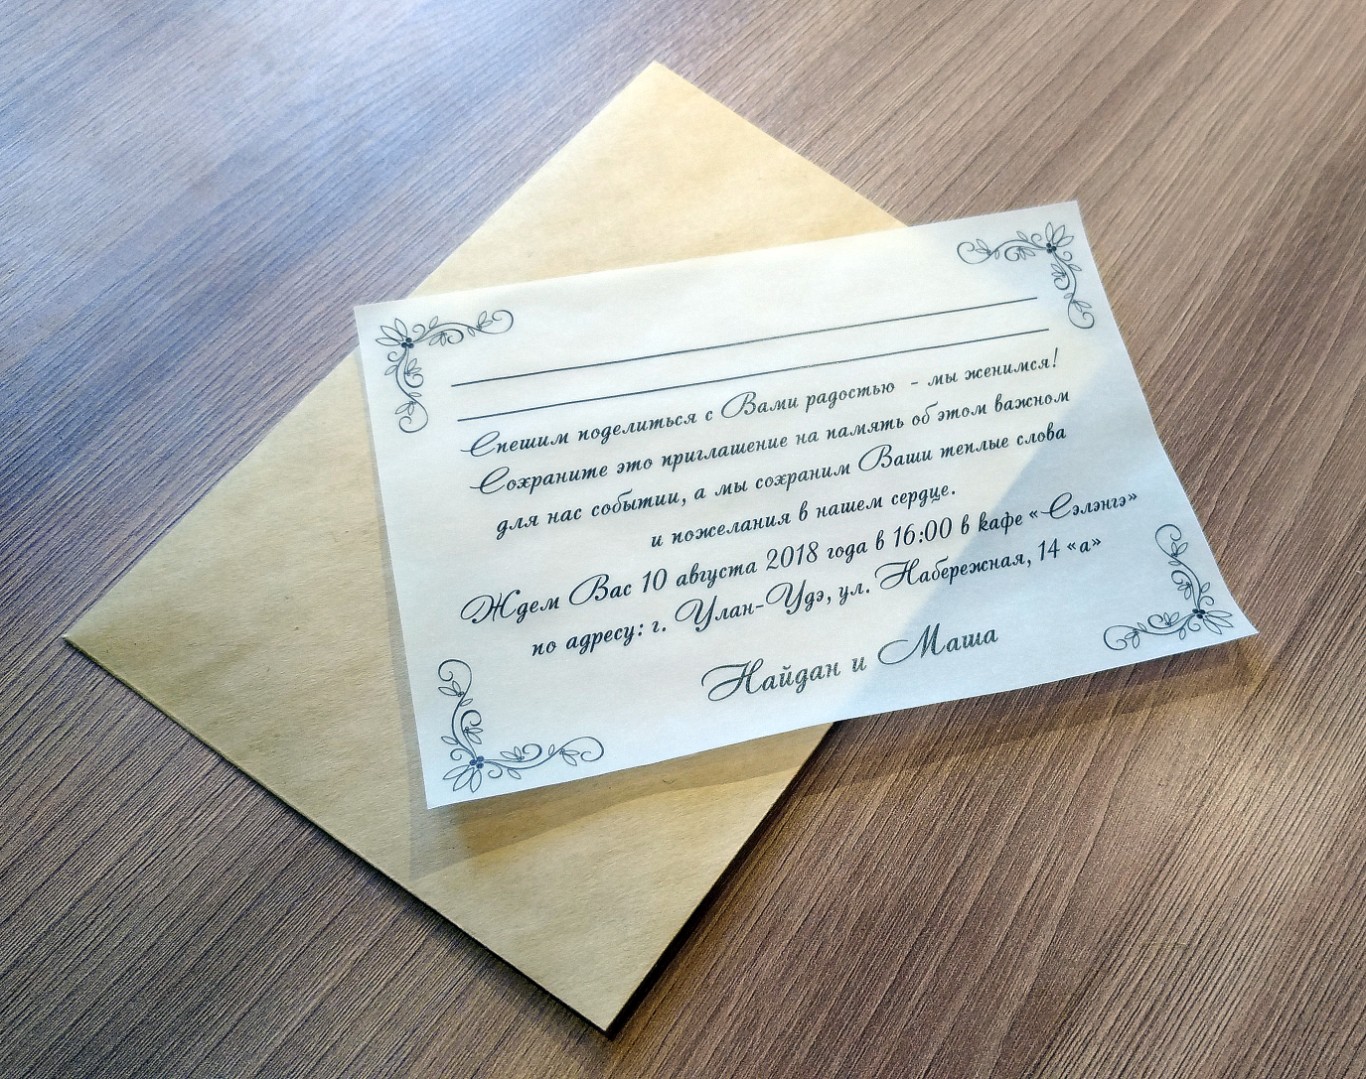 Спешим поделиться с Вами радостью - мы женимся!
Сохраните это приглашение на память об этом важном
для нас событии, а мы сохраним Ваши теплые слова
и пожелания в нашем сердце.
Ждем Вас 10 августа 2018 года в 16:00 в кафе «Сэлэнгэ»
по адресу: г. Улан-Удэ, ул. Набережная, 14 «а»
Найдан и Маша